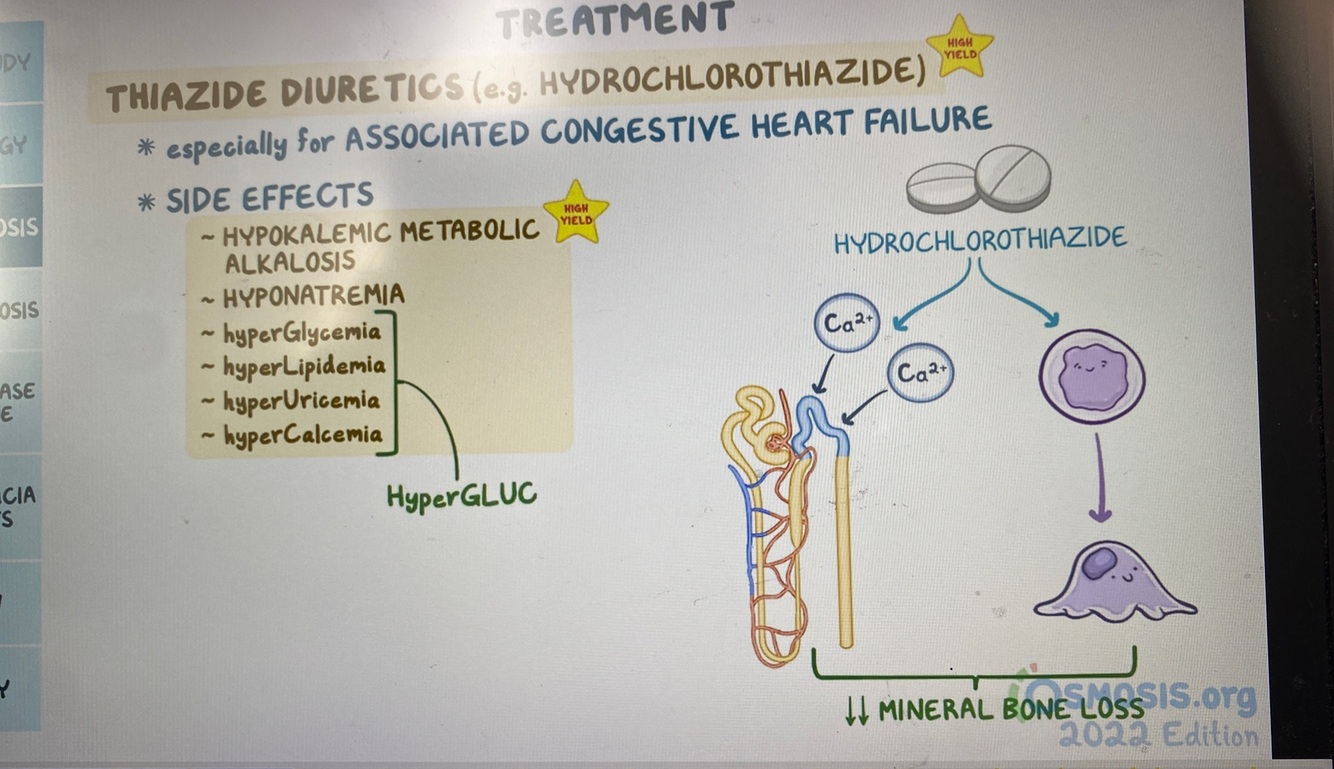 TREATMENT
THIAZIDE DIURETICS (e.g. HYDROCHLOROTHIAZIDE)
HIGH
YIELD
* especially for ASSOCIATED CONGESTIVE HEART FAILURE
* SIDE EFFECTS
HIGH
YIELD
~ HYPOKALEMIC METABOLIC
ALKALOSIS
~ HYPONATREMIA
~ hyperGlycemia
~ hyperLipidemia
~ hyperUricemia
~ hyperCalcemia
HyperGLUC
HYDROCHLOROTHIAZIDE
Ca²⁺
Ca²⁺
↓↓ MINERAL BONE LOSS
OSMOSIS.org
2022 Edition
ODY
GY
OSIS
OSIS
ASE
E
CIA
S
Y